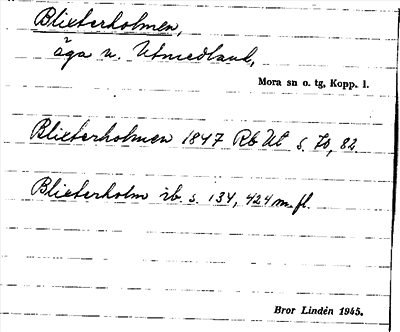 Blixterholmen,
äga u. Utmedland,
Mora sn o. tg, Kopp. l.
Blixterholmen 1847 Rb Ut s. 70, 82
Blixterholm ib. s. 134, 424 m. fl.
Bror Lindén 1945.